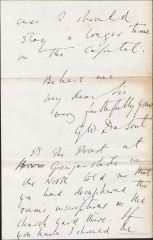 case I should
stay a longer time
in the capital.
Believe me
my dear Sir
very faithfully yours
G.W. Dasent
P.S. The Provost at
in
the North told me that
you had deciphered the
runic inscriptions in the
church yard there. If
you have I should be